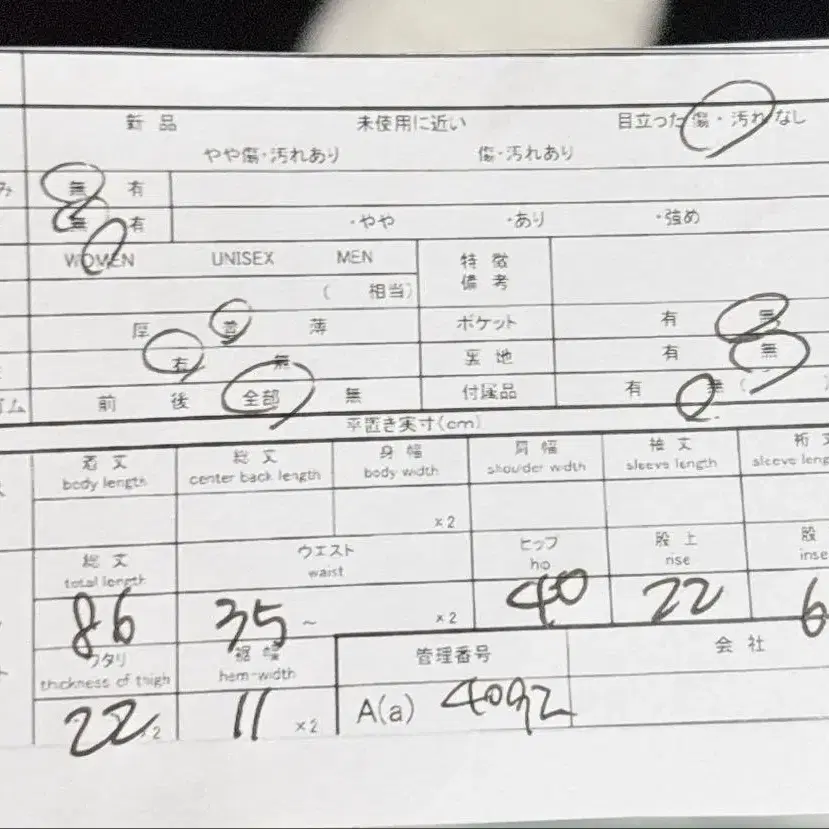 新品 未使用に近い 目立った傷・汚れなし
やや傷・汚れあり 傷・汚れあり
み 無 有
無 有 ・やや ・あり ・強め
WOMEN UNISEX MEN 特徴
備考
( 相当)
厚 普 薄 ポケット 有 無
右 無 裏地 有 無
ゴム 前 後 全部 無 付属品 有 無 ( )
平置き実寸(cm)
着丈 総丈 身幅 肩幅 袖丈 裄丈
body length center back length body width shoulder width sleeve length sleeve leng
×2
総丈 ウエスト ヒップ 股上 股
total length waist hip rise inse
86 35 ~ ×2 40 22 6
ワタリ 裾幅 管理番号 会社
thickness of thigh hem-width
22 ×2 11 ×2 A(a) 4092